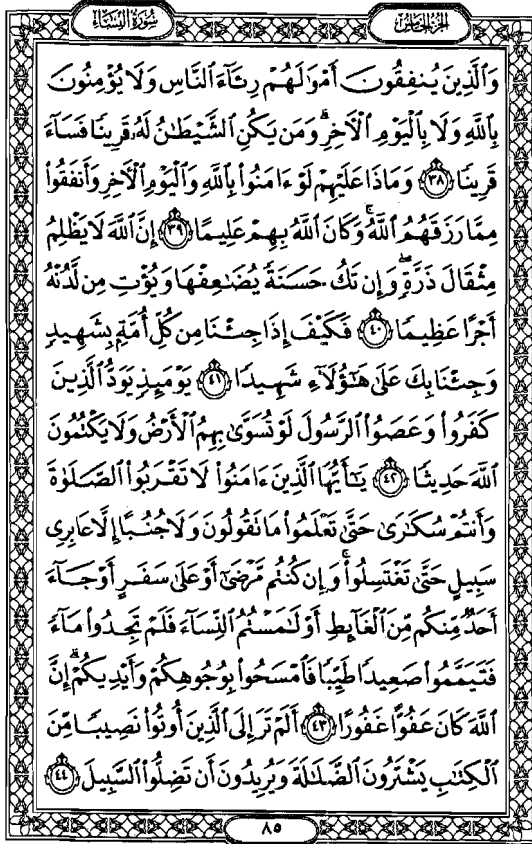 سُورَةُ النِّسَاءِ
الجزء الخامس
وَالَّذِينَ يُنفِقُونَ أَمْوَٰلَهُمْ رِئَآءَ النَّاسِ وَلَا يُؤْمِنُونَ
بِاللَّهِ وَلَا بِالْيَوْمِ الْآخِرِ ۗ وَمَن يَكُنِ الشَّيْطَٰنُ لَهُ قَرِينًا فَسَآءَ
قَرِينًا ٣٨ وَمَاذَا عَلَيْهِمْ لَوْ ءَامَنُوا بِاللَّهِ وَالْيَوْمِ الْآخِرِ وَأَنفَقُوا
مِمَّا رَزَقَهُمُ اللَّهُ ۚ وَكَانَ اللَّهُ بِهِمْ عَلِيمًا ٣٩ إِنَّ اللَّهَ لَا يَظْلِمُ
مِثْقَالَ ذَرَّةٍ ۖ وَإِن تَكُ حَسَنَةً يُضَٰعِفْهَا وَيُؤْتِ مِن لَّدُنْهُ
أَجْرًا عَظِيمًا ٤٠ فَكَيْفَ إِذَا جِئْنَا مِن كُلِّ أُمَّةٍ بِشَهِيدٍ
وَجِئْنَا بِكَ عَلَىٰ هَٰٓؤُلَآءِ شَهِيدًا ٤١ يَوْمَئِذٍ يَوَدُّ الَّذِينَ
كَفَرُوا وَعَصَوُا الرَّسُولَ لَوْ تُسَوَّىٰ بِهِمُ الْأَرْضُ وَلَا يَكْتُمُونَ
اللَّهَ حَدِيثًا ٤٢ يَٰٓأَيُّهَا الَّذِينَ ءَامَنُوا لَا تَقْرَبُوا الصَّلَوٰةَ
وَأَنتُمْ سُكَٰرَىٰ حَتَّىٰ تَعْلَمُوا مَا تَقُولُونَ وَلَا جُنُبًا إِلَّا عَابِرِى
سَبِيلٍ حَتَّىٰ تَغْتَسِلُوا ۚ وَإِن كُنتُم مَّرْضَىٰٓ أَوْ عَلَىٰ سَفَرٍ أَوْ جَآءَ
أَحَدٌ مِّنكُم مِّنَ الْغَآئِطِ أَوْ لَٰمَسْتُمُ النِّسَآءَ فَلَمْ تَجِدُوا مَآءً
فَتَيَمَّمُوا صَعِيدًا طَيِّبًا فَامْسَحُوا بِوُجُوهِكُمْ وَأَيْدِيكُمْ ۗ إِنَّ
اللَّهَ كَانَ عَفُوًّا غَفُورًا ٤٣ أَلَمْ تَرَ إِلَى الَّذِينَ أُوتُوا نَصِيبًا مِّنَ
الْكِتَٰبِ يَشْتَرُونَ الضَّلَٰلَةَ وَيُرِيدُونَ أَن تَضِلُّوا السَّبِيلَ ٤٤
٨٥